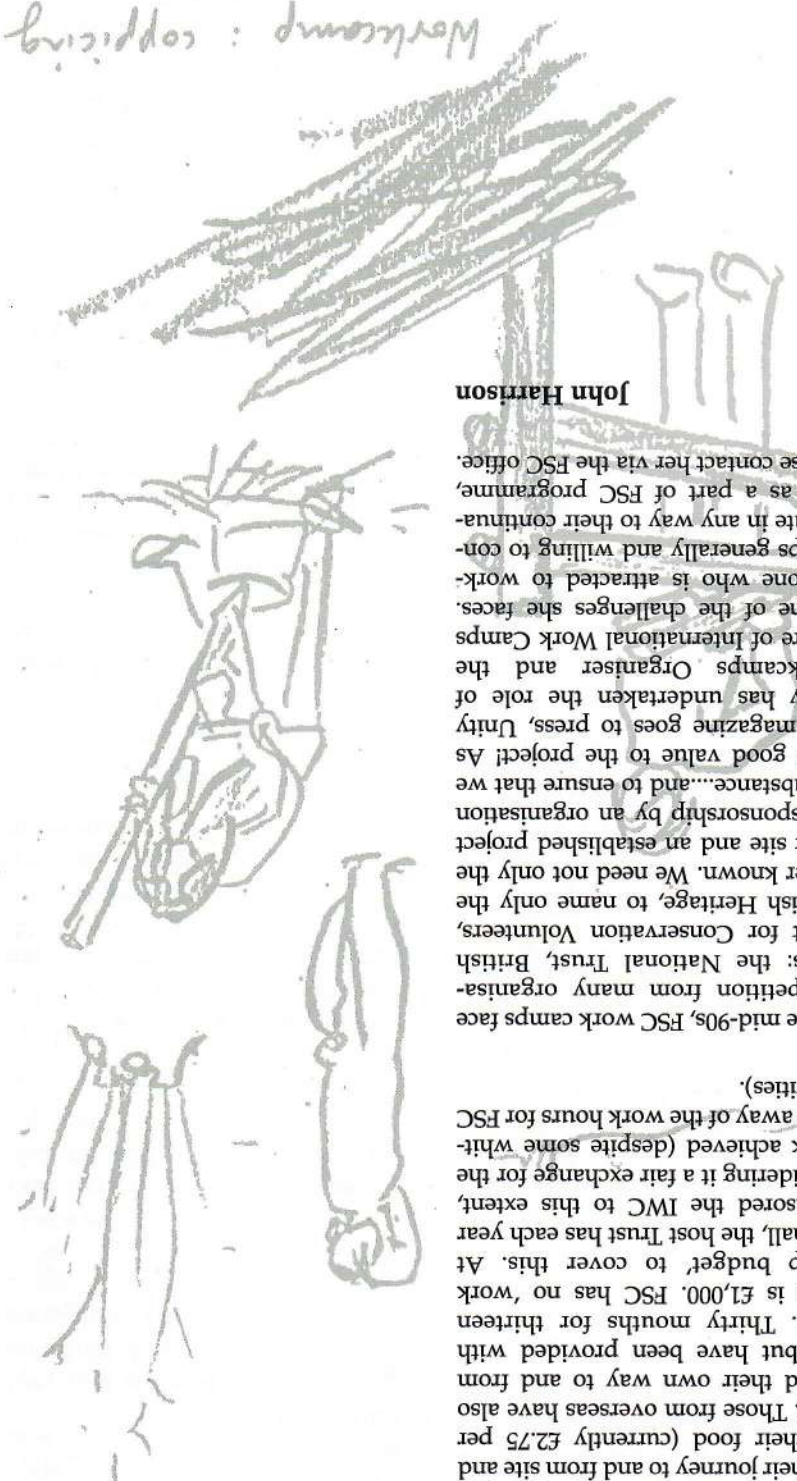 heir journey to and from site and
heir food (currently £2.75 per
. Those from overseas have also
d their own way to and from
but have been provided with
. Thirty mouths for thirteen
is £1,000. FSC has no 'work
p budget' to cover this. At
nall, the host Trust has each year
sored the IWC to this extent,
idering it a fair exchange for the
k achieved (despite some whit-
away of the work hours for FSC
ities).
e mid-90s, FSC work camps face
petition from many organisa-
s: the National Trust, British
t for Conservation Volunteers,
ish Heritage, to name only the
er known. We need not only the
t site and an established project
sponsorship by an organisation
ubstance....and to ensure that we
good value to the project! As
magazine goes to press, Unity
y has undertaken the role of
kcamps Organiser and the
re of International Work Camps
ne of the challenges she faces.
one who is attracted to work-
ps generally and willing to con-
ute in any way to their continua-
as a part of FSC programme,
se contact her via the FSC office.
John Harrison
Workcamp : coppicing